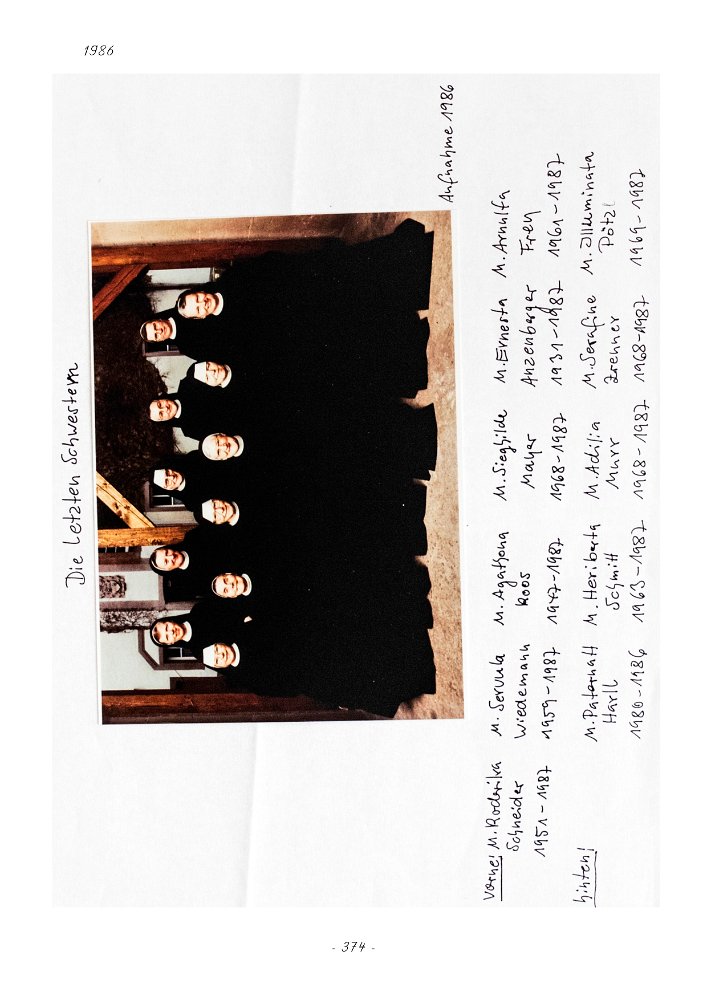 1986
Die letzten Schwestern
Aufnahme 1986
vorne: M. Roderika M. Servula M. Agathona M. Sieghilde M. Ernesta M. Arnulfa
Schneider Wiedemann Roos Mayer Anzenberger Frey
1951 - 1987 1959 - 1987 1947 - 1987 1968 - 1987 1931 - 1987 1961 - 1987
hinten: M. Heriberta M. Adilia M. Serafine M. Illuminata
Harll Schmitt Murr Zrenner Pötzl
1980 - 1986 1963 - 1987 1968 - 1987 1968 - 1987 1969 - 1987
- 374 -